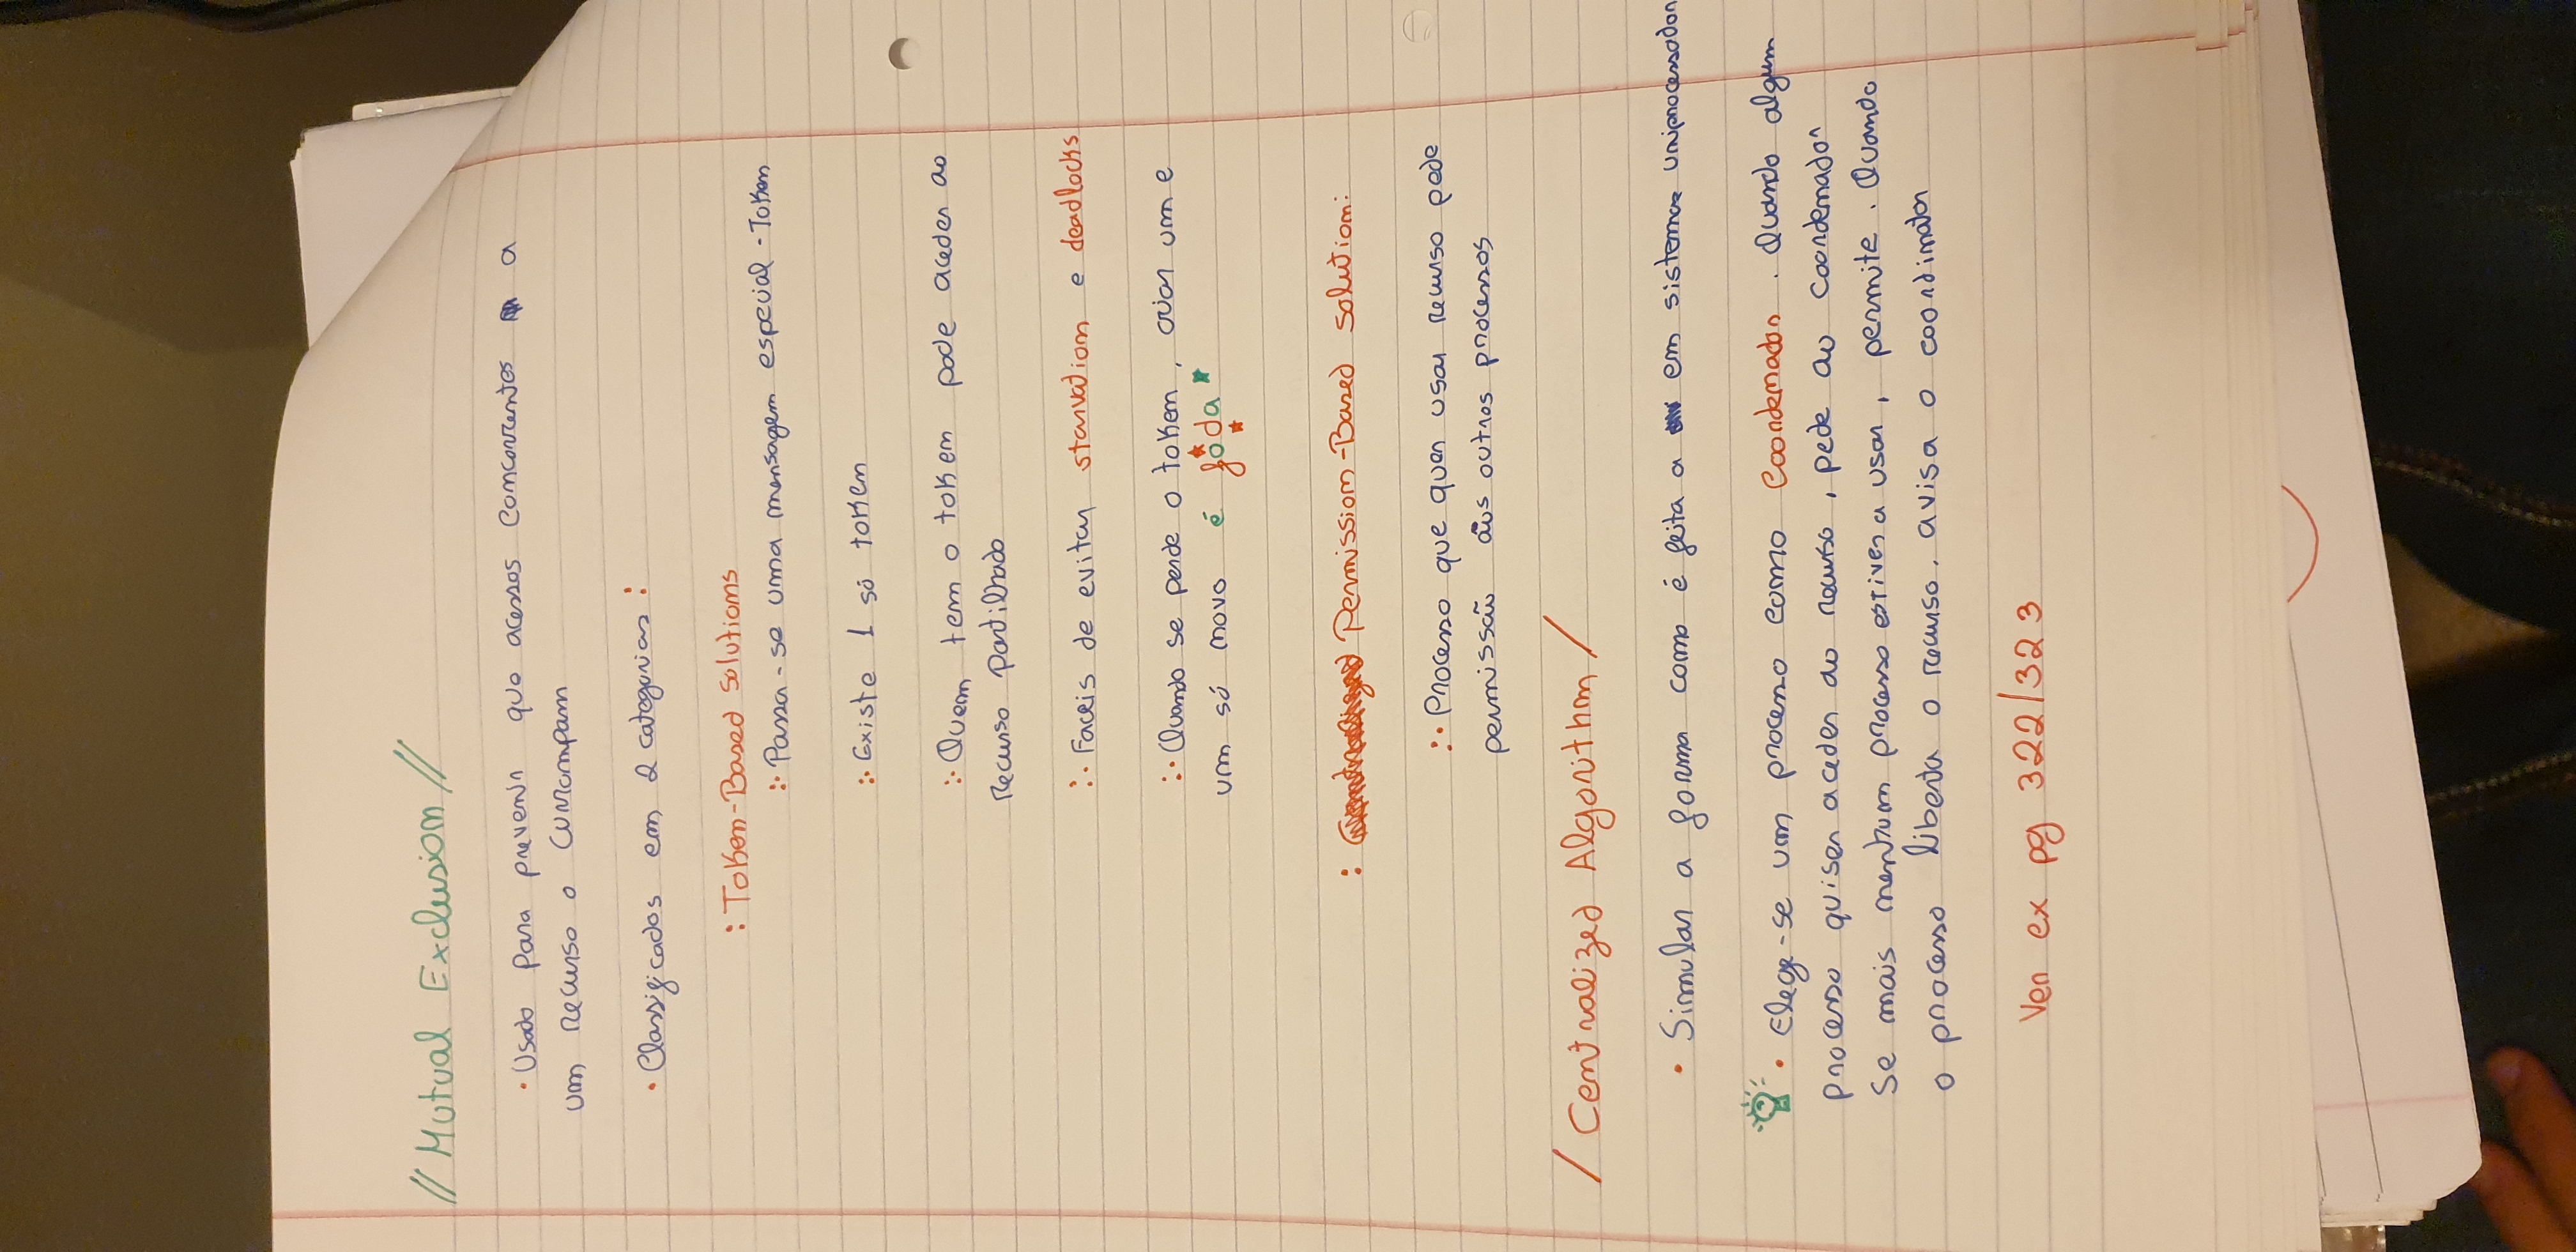 // Mutual Exclusion //
• Usado para prevenir que acessos concorrentes a
um recurso o currompam
• Classificados em 2 categorias :
: Token-Based Solutions
:· Passa-se uma mensagem especial - Token
:· Existe 1 só token
:· Quem tem o token pode aceder ao
recurso partilhado
:· Faceis de evitar starvation e deadlocks
:· Quando se perde o token, criar um e
um só novo é foda
: Permission-Based solution:
:· Processo que quer usar recurso pede
permissão aos outros processos
/ Centralized Algorithm /
• Simular a forma como é feita a em sistemas uniprocessador
• Elege-se um processo como Coordenador. Quando algum
processo quiser aceder ao recurso, pede ao coordenador
Se mais nenhum processo estiver a usar, permite. Quando
o processo liberta o recurso, avisa o coordinator
Ver ex pg 322/323